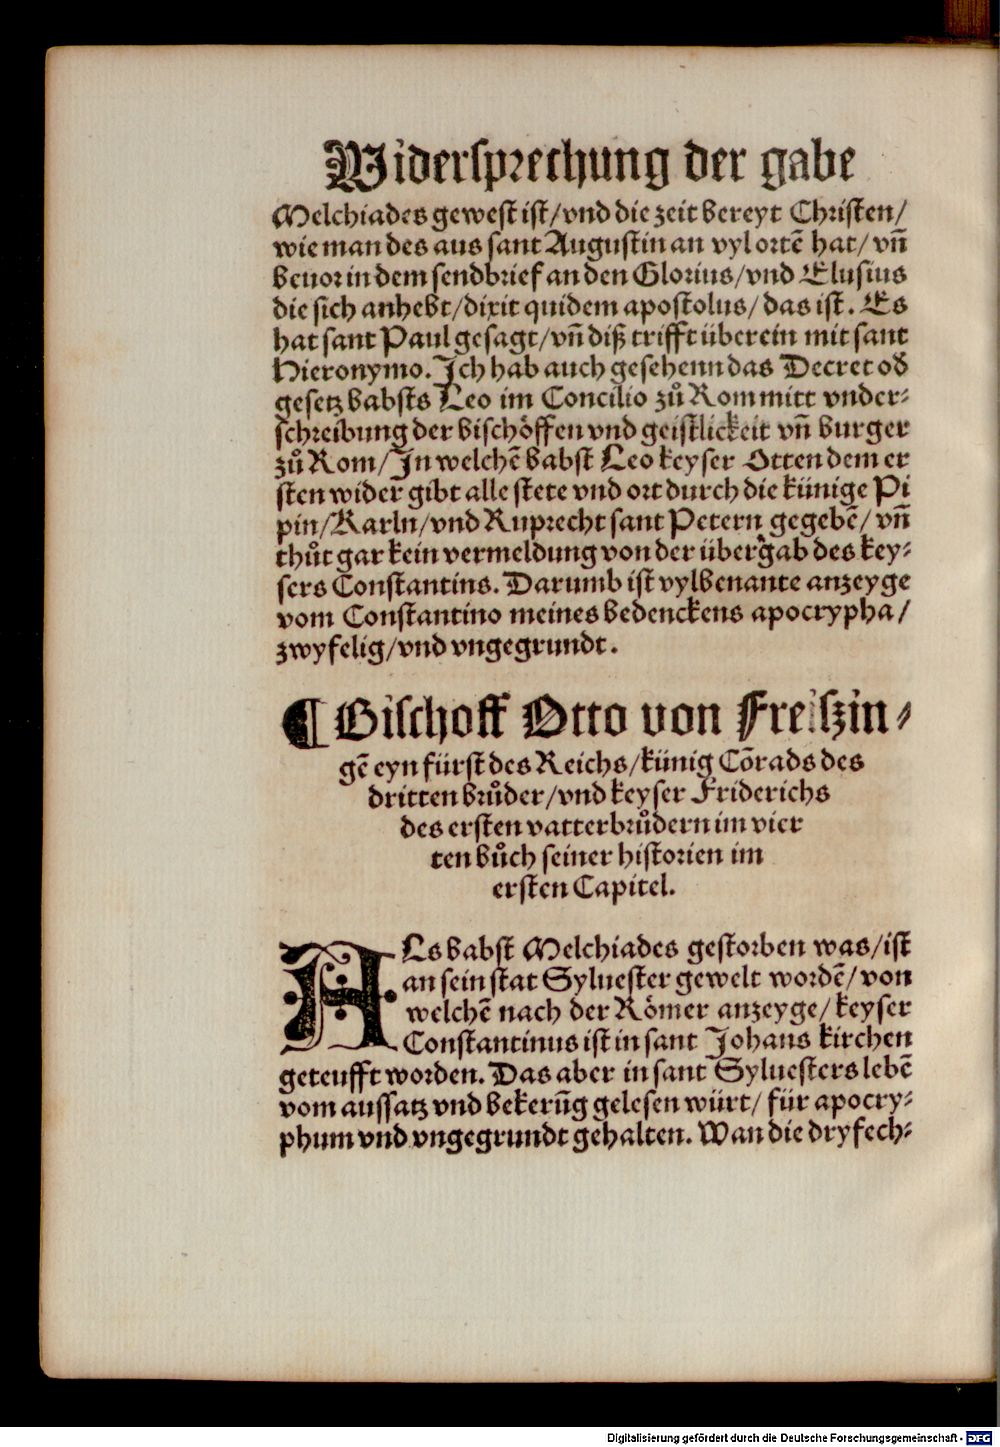 Widersprechung der gabe
Melchiades gewest ist/vnd die zeit bereyt Christen/
wie man des aus sant Augustin an vyl ortē hat/ vñ
beuor in dem sendbrief an den Glorius/vnd Elusius
die sich anhebt/dixit quidem apostolus/ das ist. Es
hat sant Paul gesagt/vñ diß trifft überein mit sant
Hieronymo. Ich hab auch gesehenn das Decret od̃
gesetz babsts Leo im Concilio zů Rom mitt vnder⸗
schreibung der bischöffen vnd geistlickeit vñ burger
zů Rom/ In welchē babst Leo keyser Otten dem er
sten wider gibt alle stete vnd ort durch die künige Pi
pin/Karln/vnd Ruprecht sant Petern gegebē/ vñ
thůt gar kein vermeldung von der übergab des key⸗
sers Constantins. Darumb ist vylbenante anzeyge
vom Constantino meines bedenckens apocrypha/
zwyfelig/vnd vngegrundt.
¶ Bischoff Otto von Freiszin⸗
gē eyn fürst des Reichs/künig Cōrads des
dritten brůder/vnd keyser Friderichs
des ersten vatterbrůdern im vier
ten bůch seiner historien im
ersten Capitel.
ALs babst Melchiades gestorben was/ist
an sein stat Syluester gewelt wordē/ von
welchē nach der Römer anzeyge/ keyser
Constantinus ist in sant Johans kirchen
geteufft worden. Das aber in sant Syluesters lebē
vom aussatz vnd bekerūg gelesen würt/ für apocry⸗
phum vnd vngegrundt gehalten. Wan die dryfech⸗
Digitalisierung gefördert durch die Deutsche Forschungsgemeinschaft - DFG